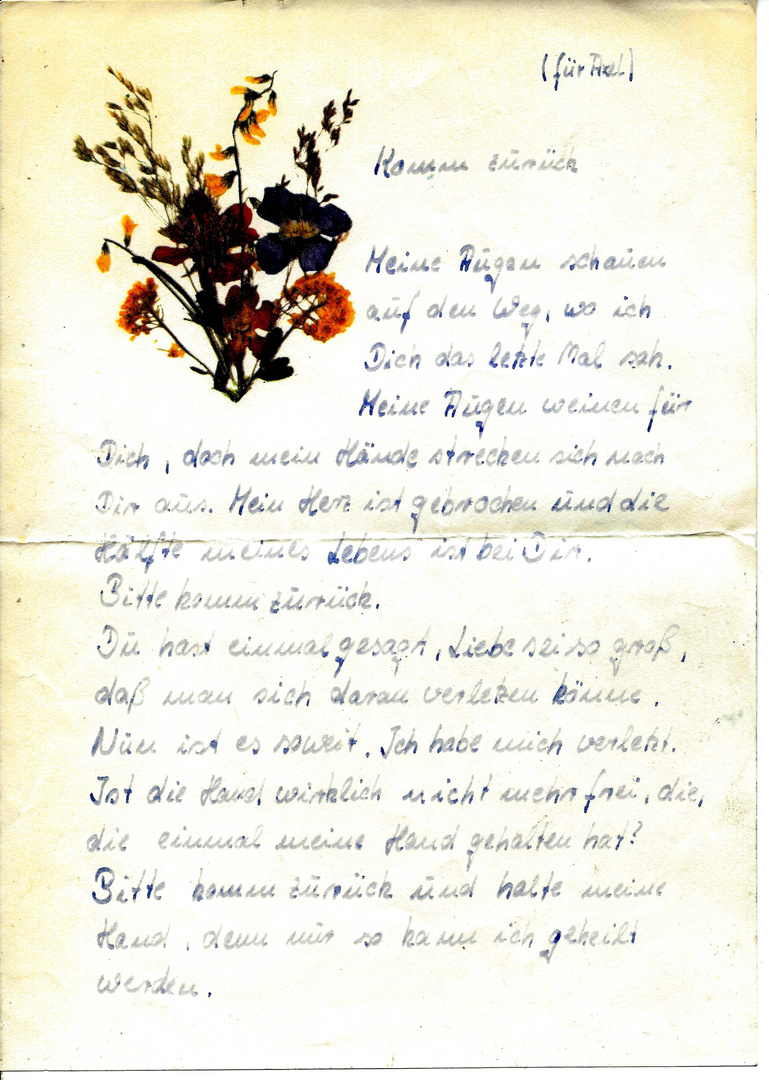 (für Axel)
Komm zurück
Meine Augen schauen
auf den Weg, wo ich
Dich das letzte Mal sah.
Meine Augen weinen für
Dich, doch mein Hände strecken sich nach
Dir aus. Mein Herz ist gebrochen und die
Hälfte meines Lebens ist bei Dir.
Bitte komm zurück.
Du hast einmal gesagt, Liebe sei so groß,
daß man sich daran verletzen könne.
Nun ist es soweit. Ich habe mich verletzt.
Ist die Hand wirklich nicht mehr frei, die,
die einmal meine Hand gehalten hat?
Bitte komm zurück und halte meine
Hand, denn nur so kann ich geheilt
werden.